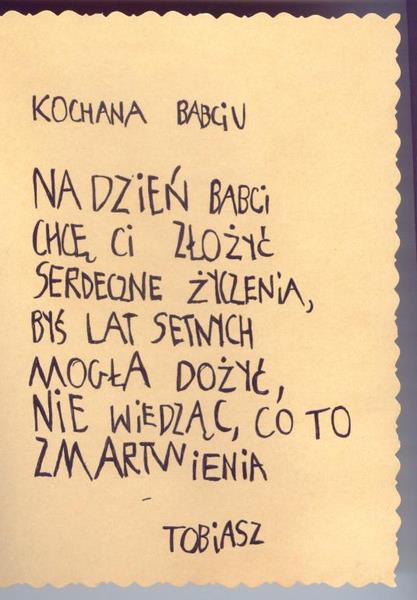 KOCHANA BABCiU
NA DZiEŃ BABCi
CHCĘ Ci ZŁOŻYĆ
SERDECZNE ŻYCZENiA,
BYŚ LAT SETNYCH
MOGŁA DOŻYĆ,
NiE WiEDZĄC, CO TO
ZMARTWiENiA
TOBiASZ